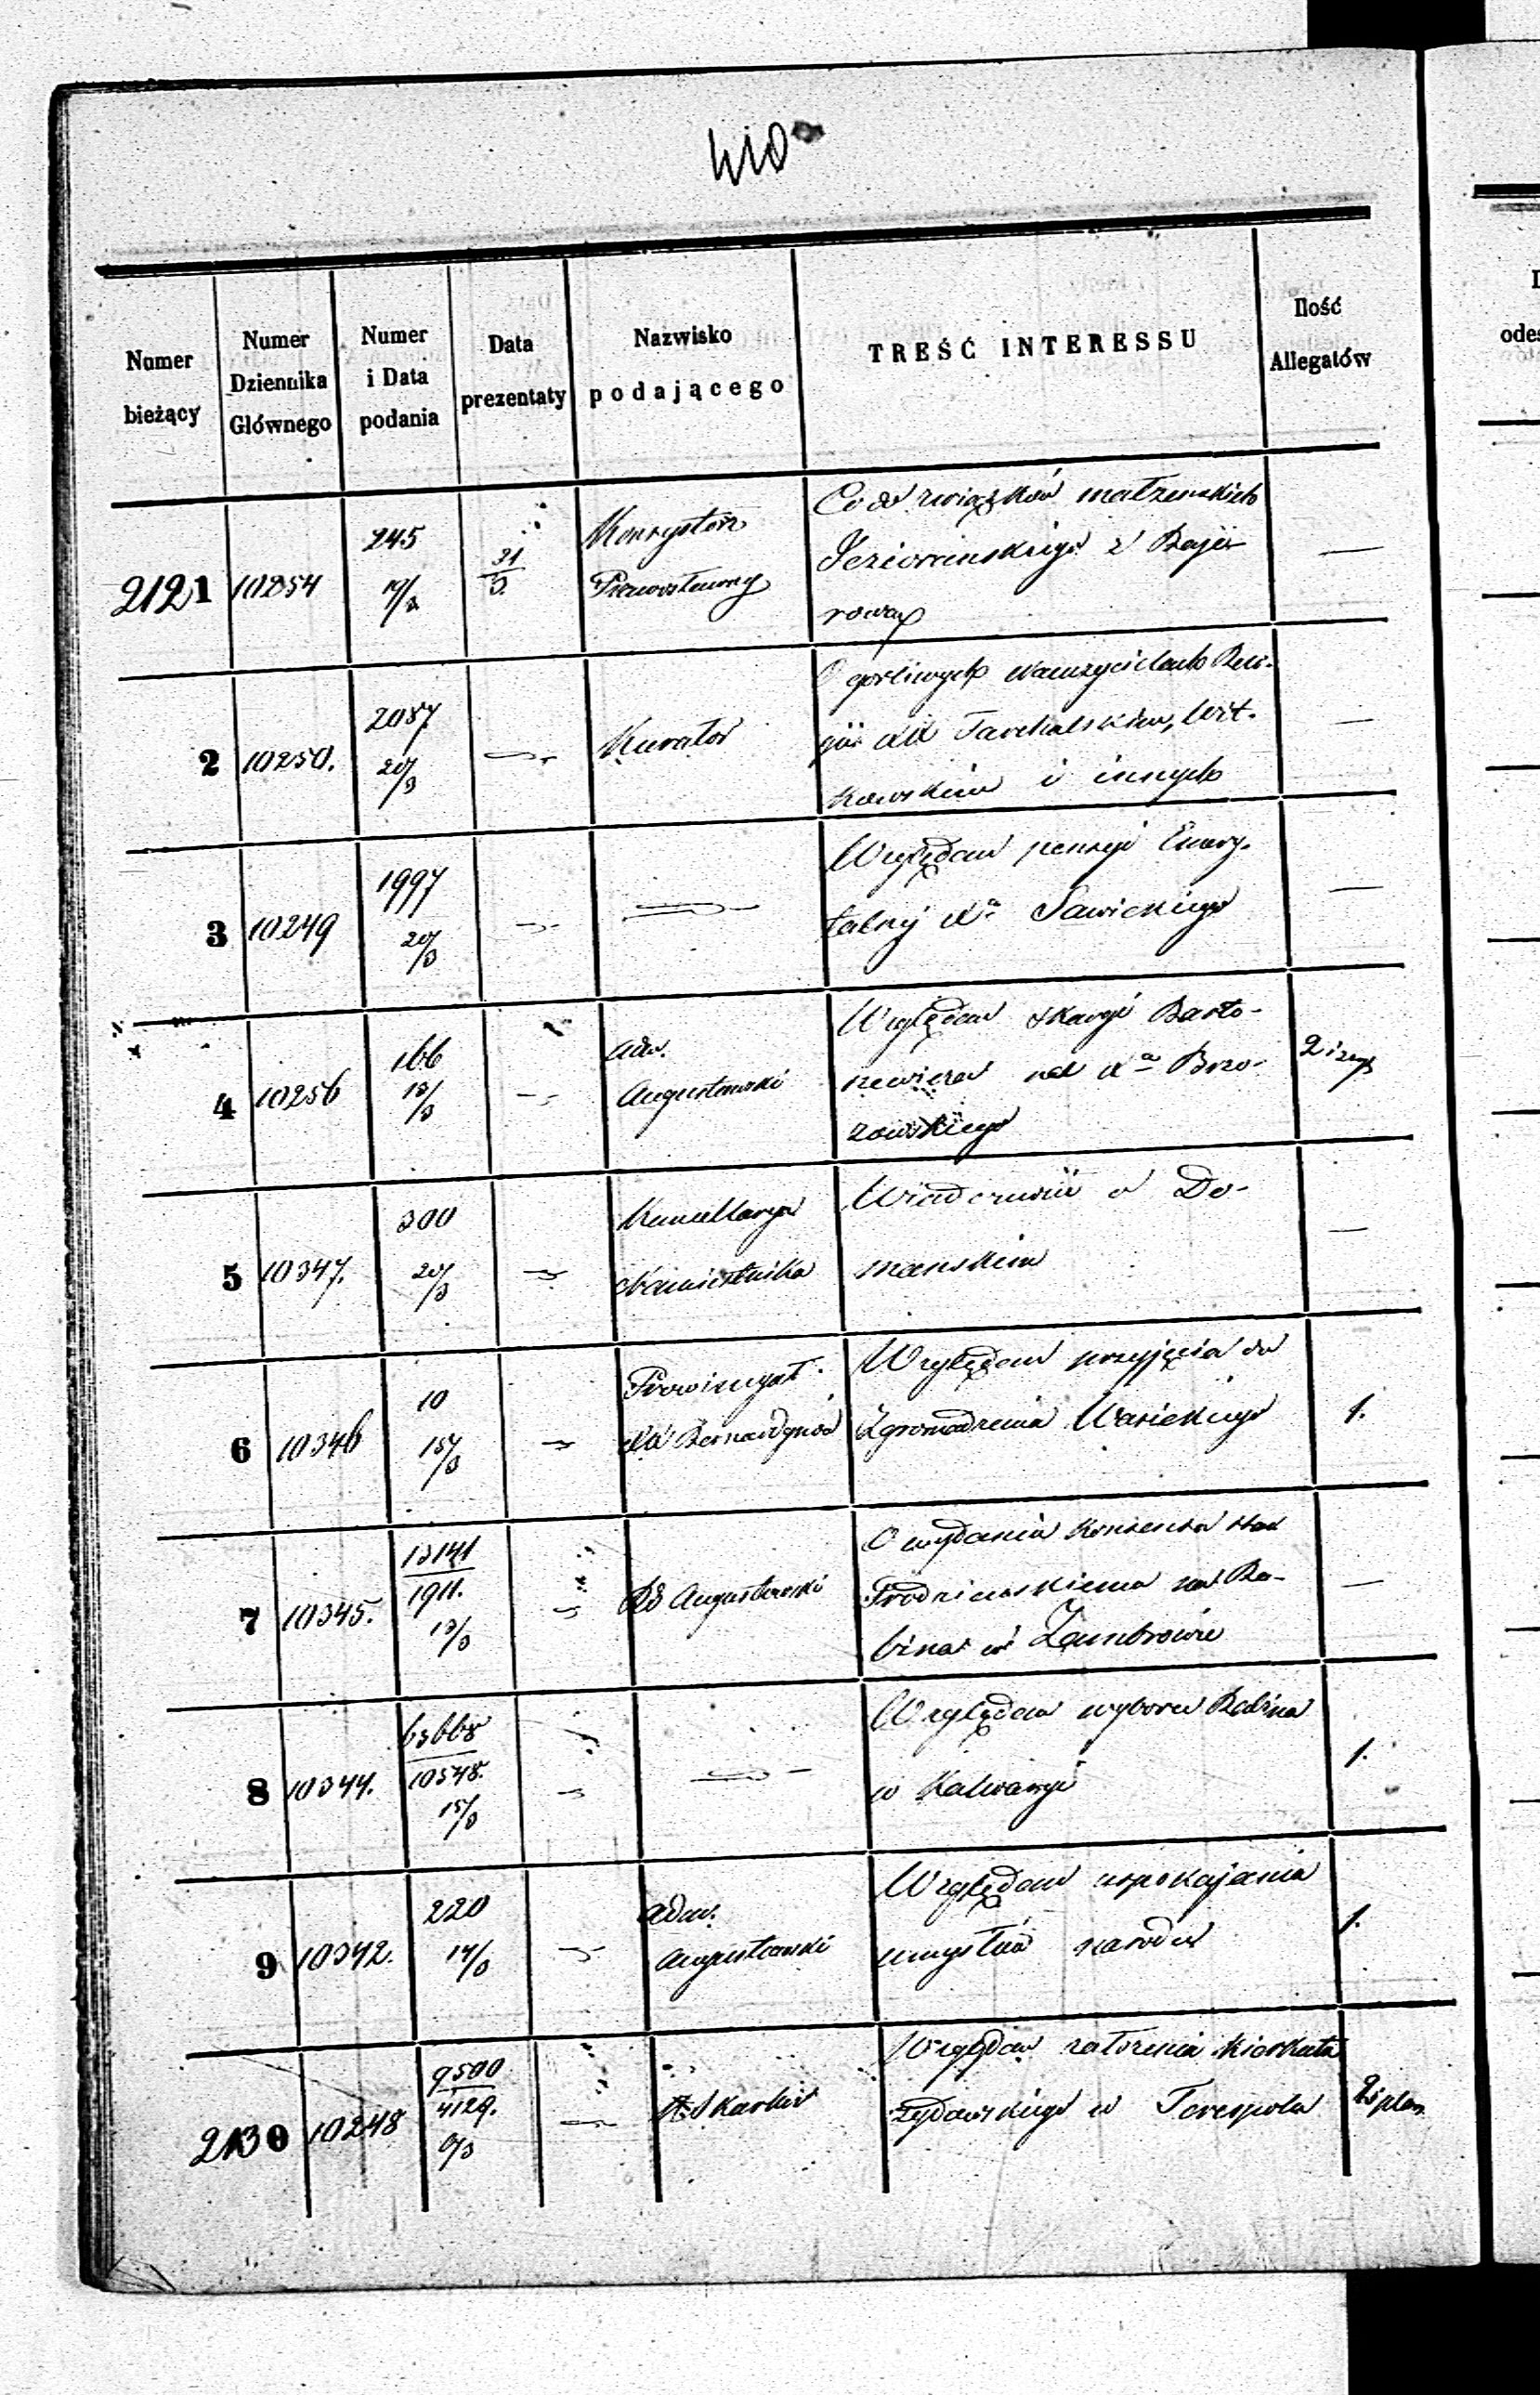 410
Numer
bieżący
Numer
Dziennika
Głównego
Numer
i Data
podania
Data
prezentaty
Nazwisko
podającego
TREŚĆ INTERESSU
Ilość
Allegatów
2121
10254
245
19/3
21/3
Konsystorz
Prawosławny
Co do związków małżenskich
Jeziorinskiego z Baje-
rową
—
2
10250.
2087
20/3
Kurator
O gorliwych Nauczycielach Reli-
gii XX Tarchalskim, Wit-
kowskim i innych
—
3
10249
1997
20/3
Względem pensyi Emery-
talnéj Xa Sawickiego
—
4
10256
166
13/3
Adm.
Augustowski
Względem skargi Barto-
szewicza na Xa Brzo-
zowskiego
2 i zesz
5
10347.
300
20/3
Kancellarya
Namiestnika
Wiadomość o Do-
manskim
—
6
10346
10
15/3
Prowincyał
XX Bernardynów
Względem przyjęcia do
Zgromadzenia Wasickiego
1.
7
10345.
13141
1911.
13/3
RG Augustowski
O wydania konsensu
na Ra-
bina w Zambrowie
—
8
10344.
63668
10548.
15/3
Względem wyboru Rabina
w Kalwaryi
1.
9
10342.
220
14/3
Adm.
Augustowski
Względem uspokajania
umysłów narodu
1.
2130
10248
9500
4129.
9/3
K Skarbu
Względem założenia kirkuta
żydowskiego w Terespolu
2 i plan
odes